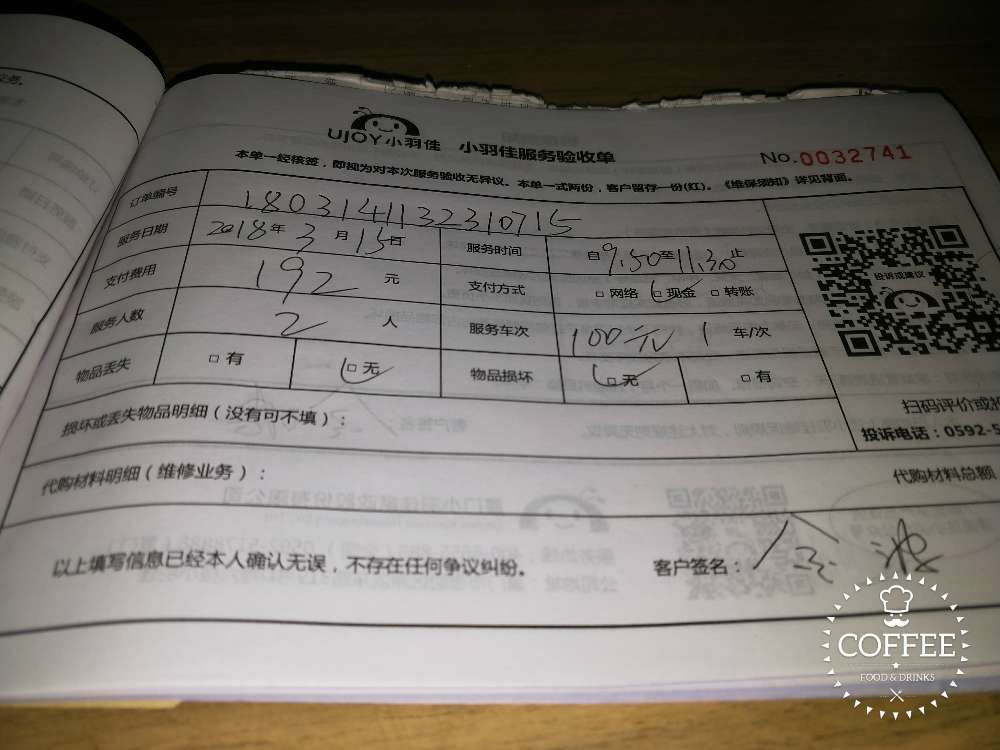 UJOY小羽佳 小羽佳服务验收单
No.0032741
本单一经核签，即视为对本次服务验收无异议。本单一式两份，客户留存一份(红)。《维保须知》详见背面。
订单编号 1803141132310715
服务日期 2018年3月15日 服务时间 自9.50至11.30止
支付费用 192元 支付方式 □网络 □现金 □转账
服务人数 2人 服务车次 100元 1车/次
物品丢失 □有 □无 物品损坏 □无 □有
投诉或建议
扫码评价或投
投诉电话：0592-5
损坏或丢失物品明细（没有可不填）：
代购材料明细（维修业务）：
代购材料总额
以上填写信息已经本人确认无误，不存在任何争议纠纷。 客户签名：
COFFEE
FOOD & DRINKS